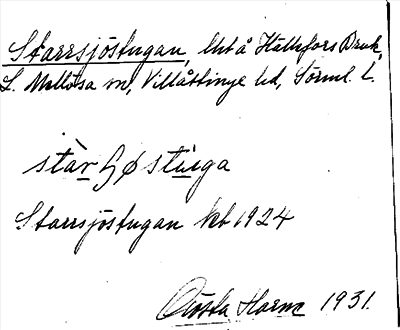 Starrsjöstugan, lht å Hällefors Bruk,
L. Mellösa sn, Villåttinge hd, Sörml. l.
stàrʃøstuga
Starrsjöstugan kb 1924
Gösta Horne 1931.